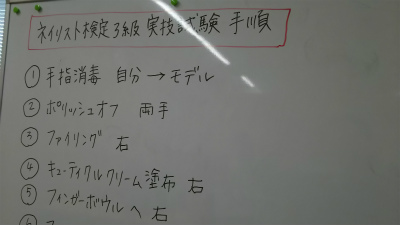 ネイリスト検定3級 実技試験 手順
① 手指消毒 自分→モデル
② ポリッシュオフ 両手
③ ファイリング 右
④ キューティクルクリーム塗布 右
⑤ フィンガーボウルへ 右
⑥